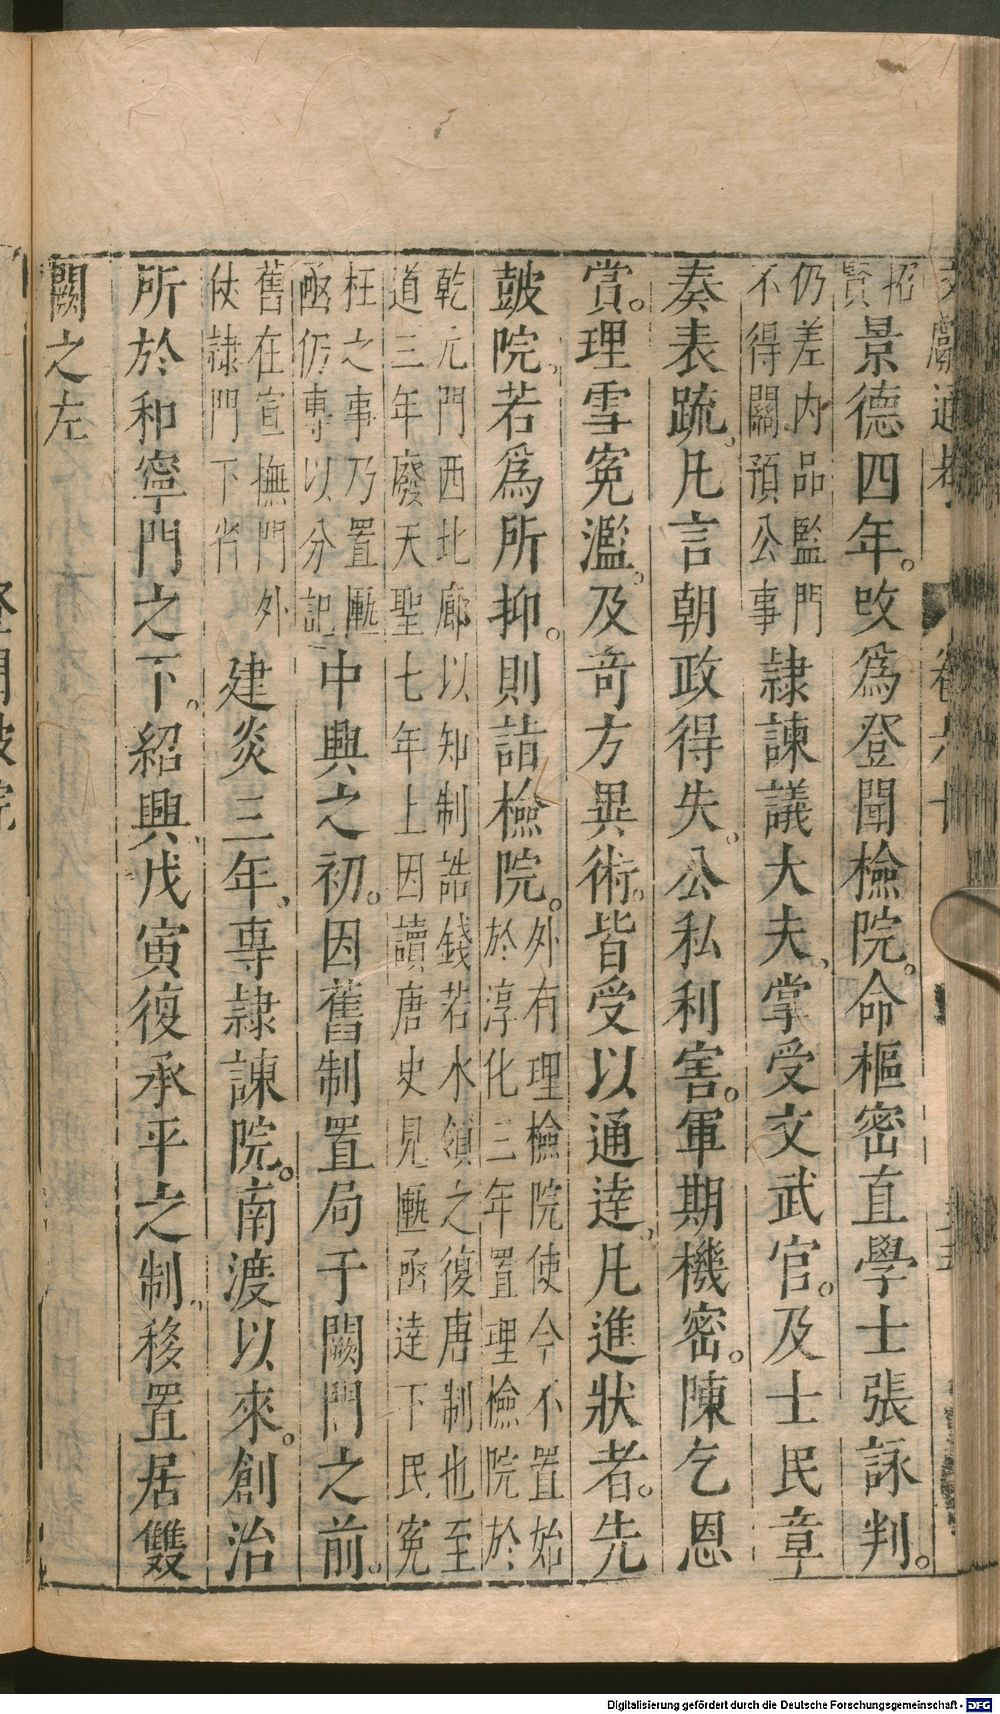 文獻通考 卷六十
招賢景德四年。改爲登聞檢院。命樞密直學士張詠判。
仍差内品監門不得關預公事隷諫議大夫、掌受文武官。及士民章
奏表疏、凡言朝政得失、公私利害。軍期機密。陳乞恩
賞。理雪寃濫。及奇方異術。皆受以通達、凡進狀者。先
皷院、若爲所抑。則詣檢院。外有理檢院使今不置始於淳化三年置理檢院於
乾元門西北廊以知制誥錢若水領之復唐制也至道三年廢天聖七年上因讀唐史見匭函達下民寃
枉之事乃置匭函仍専以分記中興之初。因舊制置局于闕門之前。
舊在宣撫門外仗隷門下省建炎三年、專隷諫院。南渡以來。創治
所於和寧門之下。紹興、戊寅復承平之制、移置居雙
闕之左
登聞皷院
Digitalisierung gefördert durch die Deutsche Forschungsgemeinschaft - DFG